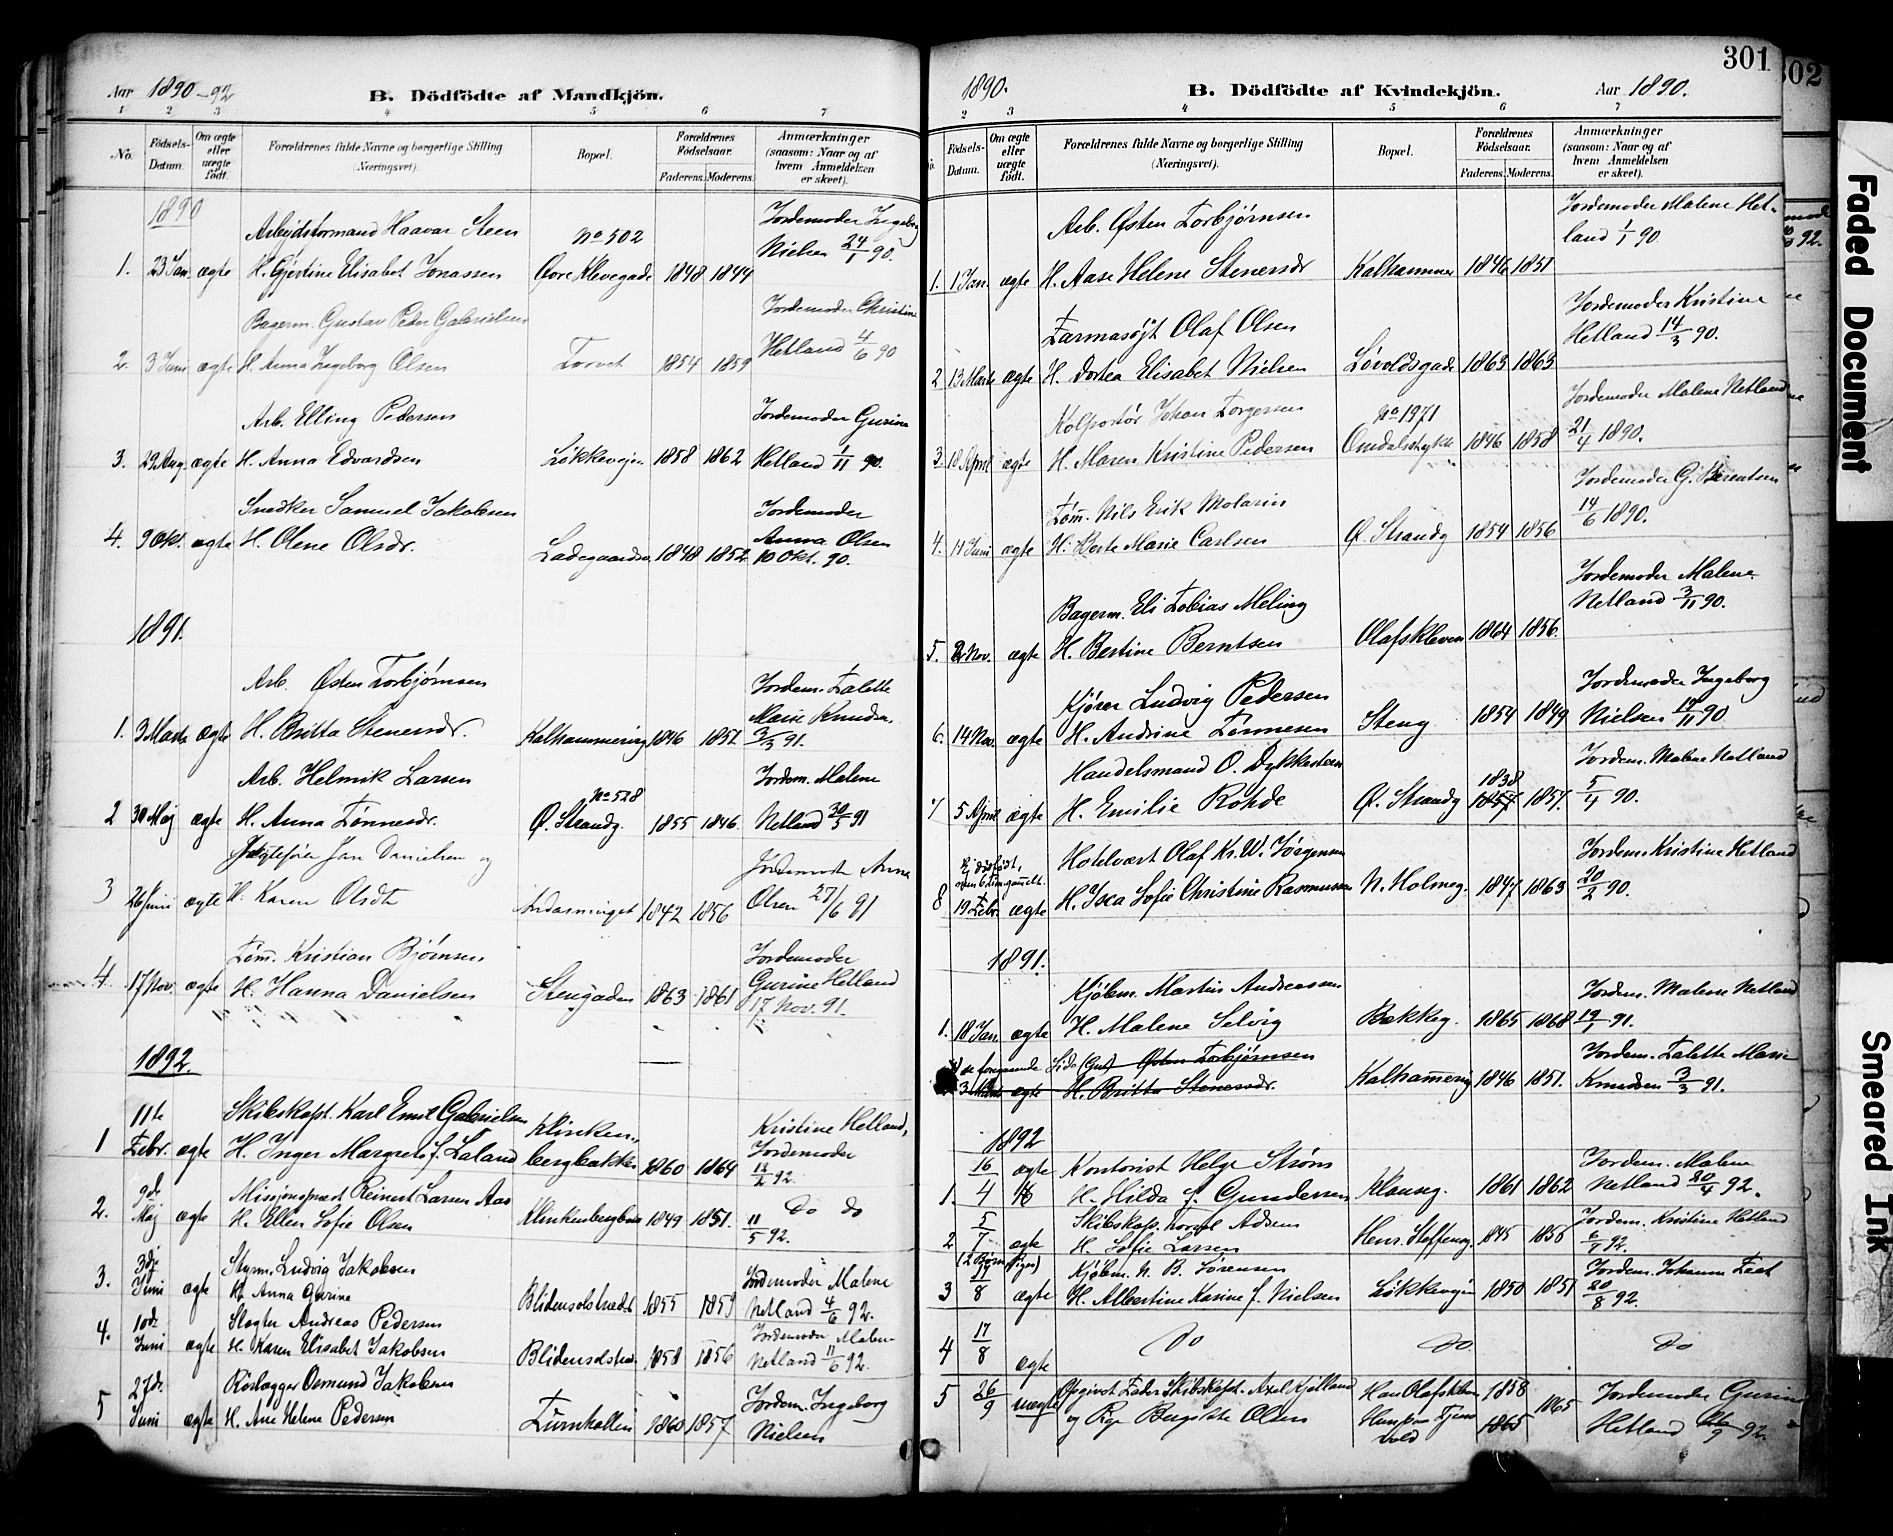 Aar 1890-92
B. Dödfödte af Mandkjön.
1 2 3 4 5 6 7
No.
Födsels-Datum.
Om ægte eller uægte födt.
Forældrenes fulde Navne og borgerlige Stilling (Næringsvei).
Bopæl.
Forældrenes Födselsaar.
Faderens. Moderens.
Anmærkninger (saasom: Naar og af hvem Anmeldelsen er skeet).
1890
Arbejdsformand Haavar Steen No 502 Jordemoder Ingeborg
1. 23 Jan. ægte H. Gjertine Elisabet Jonassen Øvre Klevegade 1848 1844 Nielsen 24/1 90.
Bagerm. Gustav Peder Gabrielsen Jordemoder Christine
2. 3 Juni ægte H. Anna Ingeborg Olsen Torvet 1854 1859 Hetland 4/6 90
Arb. Elling Pedersen Jordemoder Gurine
3. 29 Aug. ægte H. Anna Edvardsen Løkkevejen 1858 1862 Hetland 1/11 90.
Snedker Samuel Jakobsen Jordemoder
4. 9 Okt. ægte H. Olene Olsdr. Ladegaardsv. 1848 1852 Anna Olsen
10 Okt. 90.
1891.
Arb. Østen Torbjørnsen Jordem. Talette
1. 3 Marts ægte H. Britta Stenersdr. Kalhammering 1846 1851 Marie Knudsen
3/3 91.
Arb. Helmik Larsen No 528 Jordem. Malene
2 30 Maj ægte H. Anna Tønnesdr. Ø. Strandg. 1855 1846. Netland 30/5 91
Jægtefører Jan Danielsen og Jordemoder Anna
3 26 Juni ægte H. Karen Olsdt 1842 1856 Olsen 27/6 91
Tøm. Kristian Bjørnsen Jordemoder
4. 17 Nov. ægte H. Hanna Danielsen Stengaden 1863 1861 Gurine Hetland
17 Nov. 91.
1892.
11te Skibskapt. Karl Emil Gabrielsen Klinken- Kristine Hetland,
1 Febr. ægte H. Inger Margrete f. Laland bergbakken 1860 1864 Jordemoder
12/2 92.
9de Missjonsprest Reinert Larsen Aas Do do
2. Maj ægte H. Ellen Sofie Olsen Klinkenbergbak 1849 1851. 11/5 92.
3dje Styrm. Ludvig Jakobsen Jordemoder Malene
3. Juni ægte H. Anna Gurine Blidensolstrædet 1855 1859 Netland 4/6 92.
10de Slagter Andreas Pedersen Jordemoder Malene
4. Juni ægte H. Karen Elisabet Jakobsen Blidensolstræ. 1858 1856 Netland 11/6 92.
27de Rørlægger Osmund Jakobsen Jordem. Ingeborg
5 Juni ægte H. Ane Helene Pedersen Turnhallen 1860 1857 Nielsen
301
302
1890.
B. Dödfödte af Kvindekjön.
Aar 1890.
2 3 4 5 6 7
Födsels-Datum.
Om ægte eller uægte födt.
Forældrenes fulde Navne og borgerlige Stilling (Næringsvei).
Bopæl.
Forældrenes Födselsaar.
Faderens. Moderens.
Anmærkninger (saasom: Naar og af hvem Anmeldelsen er skeet).
Arb. Østen Torbjørnsen Jordemoder Malene Het-
land 1/1 90.
1. 1 Jan. ægte H. Aase Helene Stenersdr Kalhammer 1846 1851
Farmasøjt Olaf Olsen Jordemoder Kristine
Hetland 14/3 90.
2 13 Marts ægte H. Dortea Elisabet Nielsen Løvoldsgade 1863 1863
Kolportør Johan Torgersen No 1971 Jordemoder Malene Netland
3 18 April ægte H. Maren Kristine Pedersen Omdalsstykke 1846 1858 21/4 1890.
Tøm. Nils Erik Molarin Jordemoder G. Berentsen
14/6 1890.
4. 11 Juni ægte H. Berte Marie Carlsen Ø. Strandg 1854 1856
Bagerm. Eli Tobias Meling Jordemoder Malene
Netland 3/11 90.
5. 2 Nov. ægte H. Bertine Berntsen Olafskleven 1864 1856.
Kjører Ludvig Pedersen Jordemoder Ingeborg
6. 14 Nov. ægte H. Andrine Tønnesen Steng 1854 1849 Nielsen 14/11 90
Handelsmand O. Dykkesteen 1838 Jordem. Malene Netland
7 5 April ægte H. Emilie Rohde Ø. Strandg 1857 1857. 5/4 90.
Ej dødfødt,
Hotelvært Olaf Kr. W. Jørgensen Jordem. Kristine Hetland
8 19 Febr. ægte H. Isea Sofie Christine Rasmussen N. Holmeg. 1847 1863 20/2 90.
1891.
Kjøbm. Martin Andreassen Jordem. Malene Netland
1. 18 Jan. ægte H. Malene Selvig Bækkeg. 1865 1868 19/1 91.
se foregaaende Side (Gut) Østen Torbjørnsen Jordem. Talette Marie
3 Marts ægte H. Britta Stenersdr. Kalhammerig 1846 1851. Knudsen 3/3 91.
1892
16/4 ægte Kontorist Helge Strøm Jordem. Malene
1. H. Hilda f. Gundersen Klausg. 1861 1862 Netland 20/4 92.
5/7 Skibskap. Adsen Jordem. Kristine Hetland
2 ægte H. Sofie Larsen Henr. Steffensg. 1845 1856 6/7 92.
(2 Børn Piger)
17/8 Kjøbm. N. B. Sørensen Jordem. Johanne Fact
3 ægte H. Albertine Karine f. Nielsen Løkkevejen 1850 1851 20/8 92.
4 17/8 ægte Do Do Do
5 26/9 uægte Opgivet Fader Skibskapt. Axel Kjølland Han Olafskleven 1858 1865 Jordemoder Gurine
og Pige Bergitte Olsen Hun paa Tjens- 1865 Hetland 26/9 92.
vold
92.
Faded Document
Smeared Ink